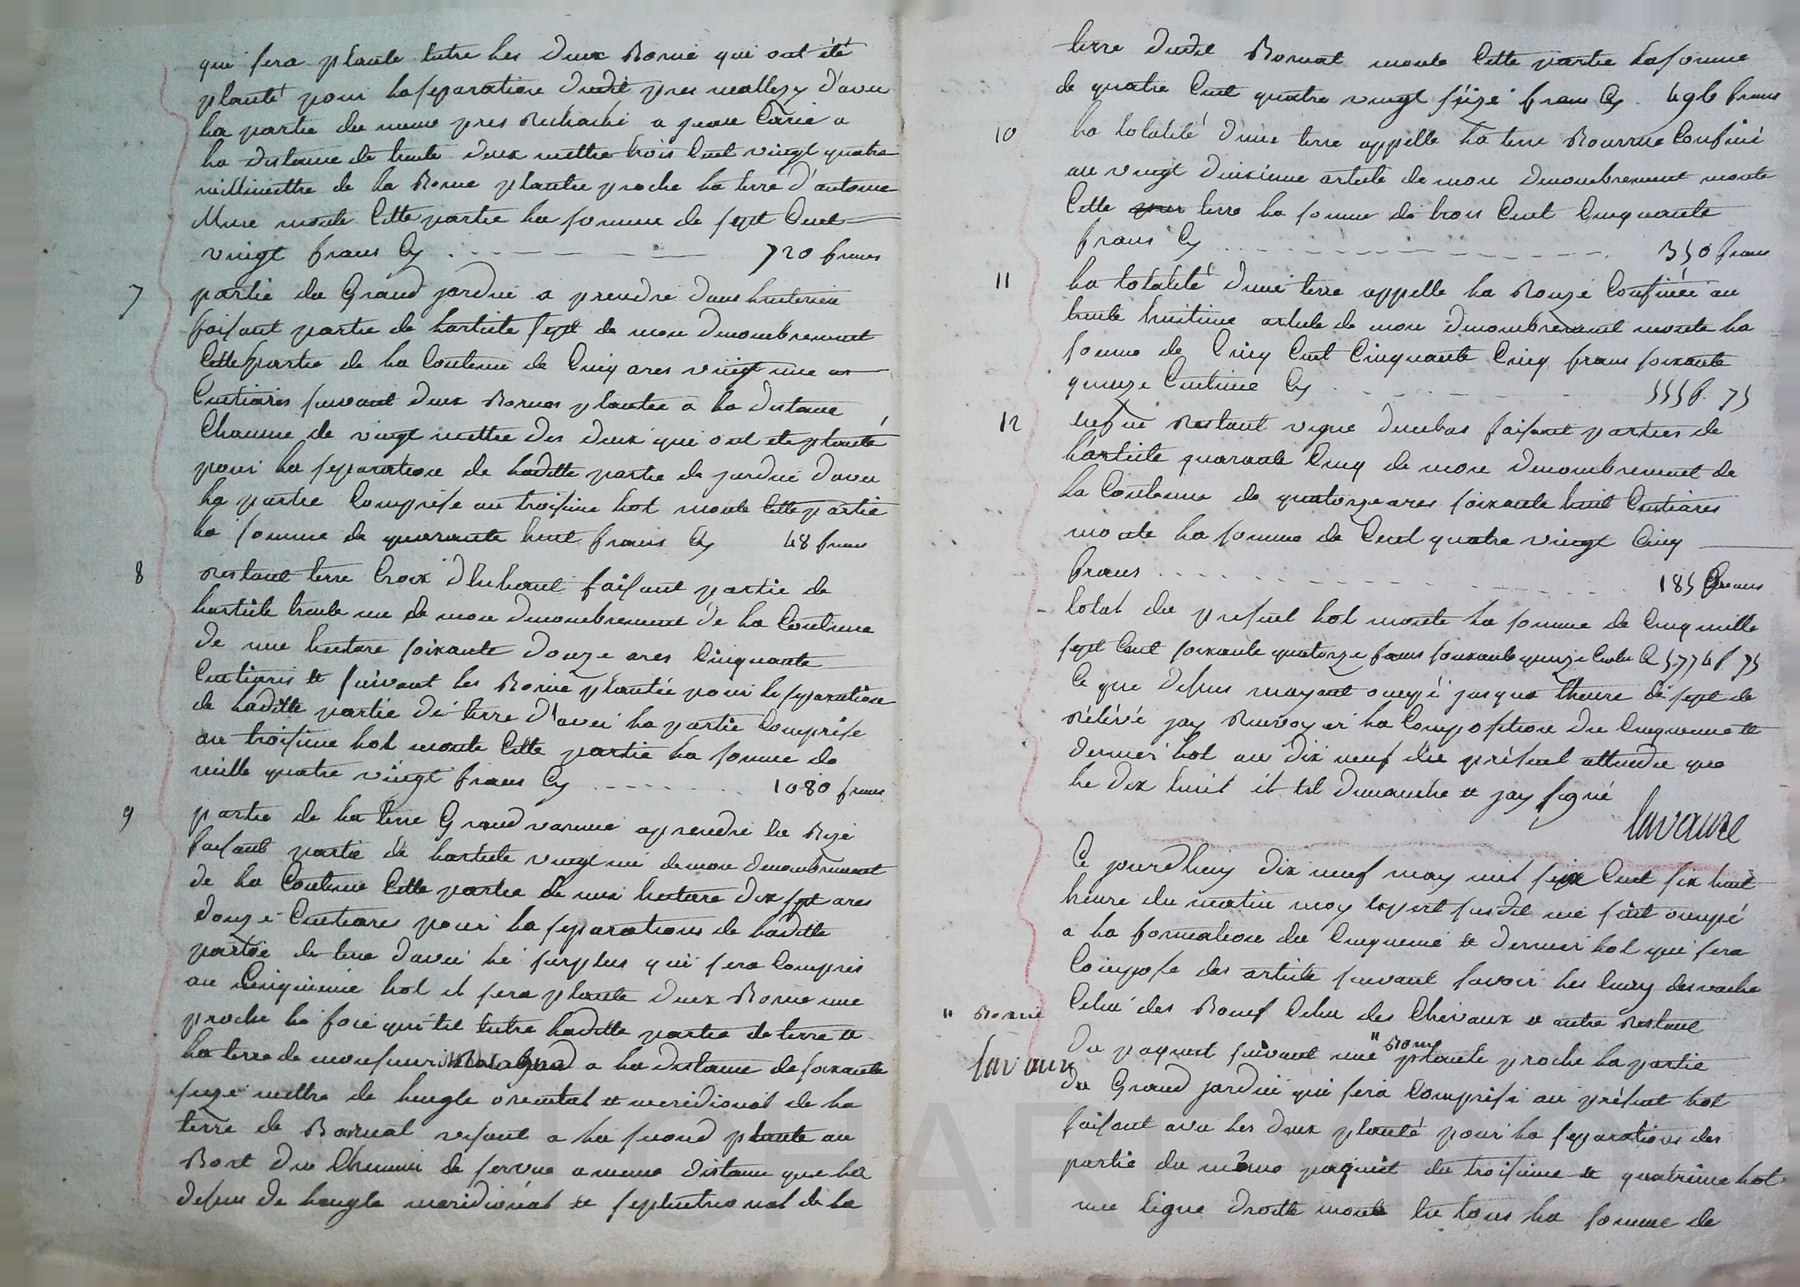 qui sera plante entre les deux Borne qui ont été
planté pour la separation dudit pres davec
la partie du meme pres a jean
la distance de trente deux mettre trois Cent vingt quatre
millimettre de la Borne plantee proche la terre d'antoine
Mure monte Cette partie la somme de sept Cent
vingt frans Cy 720 frans
7 partie du Grand jardin a prendre dans
faisant partie de larticle sept de mon denombrement
Cette partie de la Contenue de Cinq ares vingt une
Centiares suivant deux Bornes plantee a la distance
Chacune de vingt mettre des deux qui ont ete planté
pour la separation de laditte partie de jardin davec
la partie Comprise au troisime lot monte Cette partie
la somme de quarante huit frans Cy 48 frans
8 restant terre Croix faisant partie de
larticle trente une de mon denombrement de la Contenue
de une hectare soixante douze ares Cinquante
Centiares et suivant les Borne plantée pour la separation
de laditte partie de terre d'avec la partie Comprise
au troisime lot monte Cette partie la somme de
mille quatre vingt frans Cy 1080 frans
9 partie de la terre Grand a prendre de Bize
faisant partie de larticle vingt un de mon denombrement
de la Contenue Cette partie de une hectare dix sept ares
douze Centiares pour la separations de laditte
partie de terre davec le surplus qui sera Compris
au Cinquieme lot il sera plante deux Borne une
proche la qui est entre laditte partie de terre et
la terre de monsieur a la distance de soixante
seize mettre de langle oriental et meridional de la
terre de Bornat visant a la segond plante au
Bort du Chemin de a meme distance que la
desus de langle meridional et septentrional de la
terre dudit Bornat monte Cette partie la somme
de quatre Cent quatre vingt seize frans Cy 496 frans
10 la totalité dune terre appelle la terre Confiné
au vingt article de mon denombrement monte
Cette terre la somme de trois Cent Cinquante
frans Cy 350 frans
11 la totalité dune terre appelle la Confinée au
trente huitime article de mon denombrement monte la
somme de Cinq Cent Cinquante Cinq frans soixante
quinze Centime Cy 555 f. 75
12 enfin restant vigne faisant parties de
larticle quarante Cinq de mon denombrement de
la Contenue de quatorze ares soixante huit Centiares
monte la somme de Cent quatre vingt Cinq
frans 185 frans
total du present lot monte la somme de Cinq mille
sept Cent soixante quatorze frans soixante quinze C 5,774 f 75
Ce que desus mayant ocupé jusqua lheure de sept de
rélévé jay renvoyer la Composition du Cinquieme et
dernier lot au dix neuf du présent attendu que
le dix huit il est dimanche et jay signé
Lavaure
Ce jourdhuy dix neuf may mil Cent six huit
heure du matin moy expert susdit me suit ocupé
a la formation du Cinquieme et dernier lot qui sera
Compose des article suivant savoir les des vache
Celui des Boeuf Celui des Chevaux et autre restant
" Borne
Lavaure
du paquit suivant une " Borne plante proche la partie
du Grand jardin qui sera Comprise au présent lot
faisant avec les deux planté pour la separations des
partie du même paquit du troisime et quatrieme lot
une ligne droite monte le tous la somme de